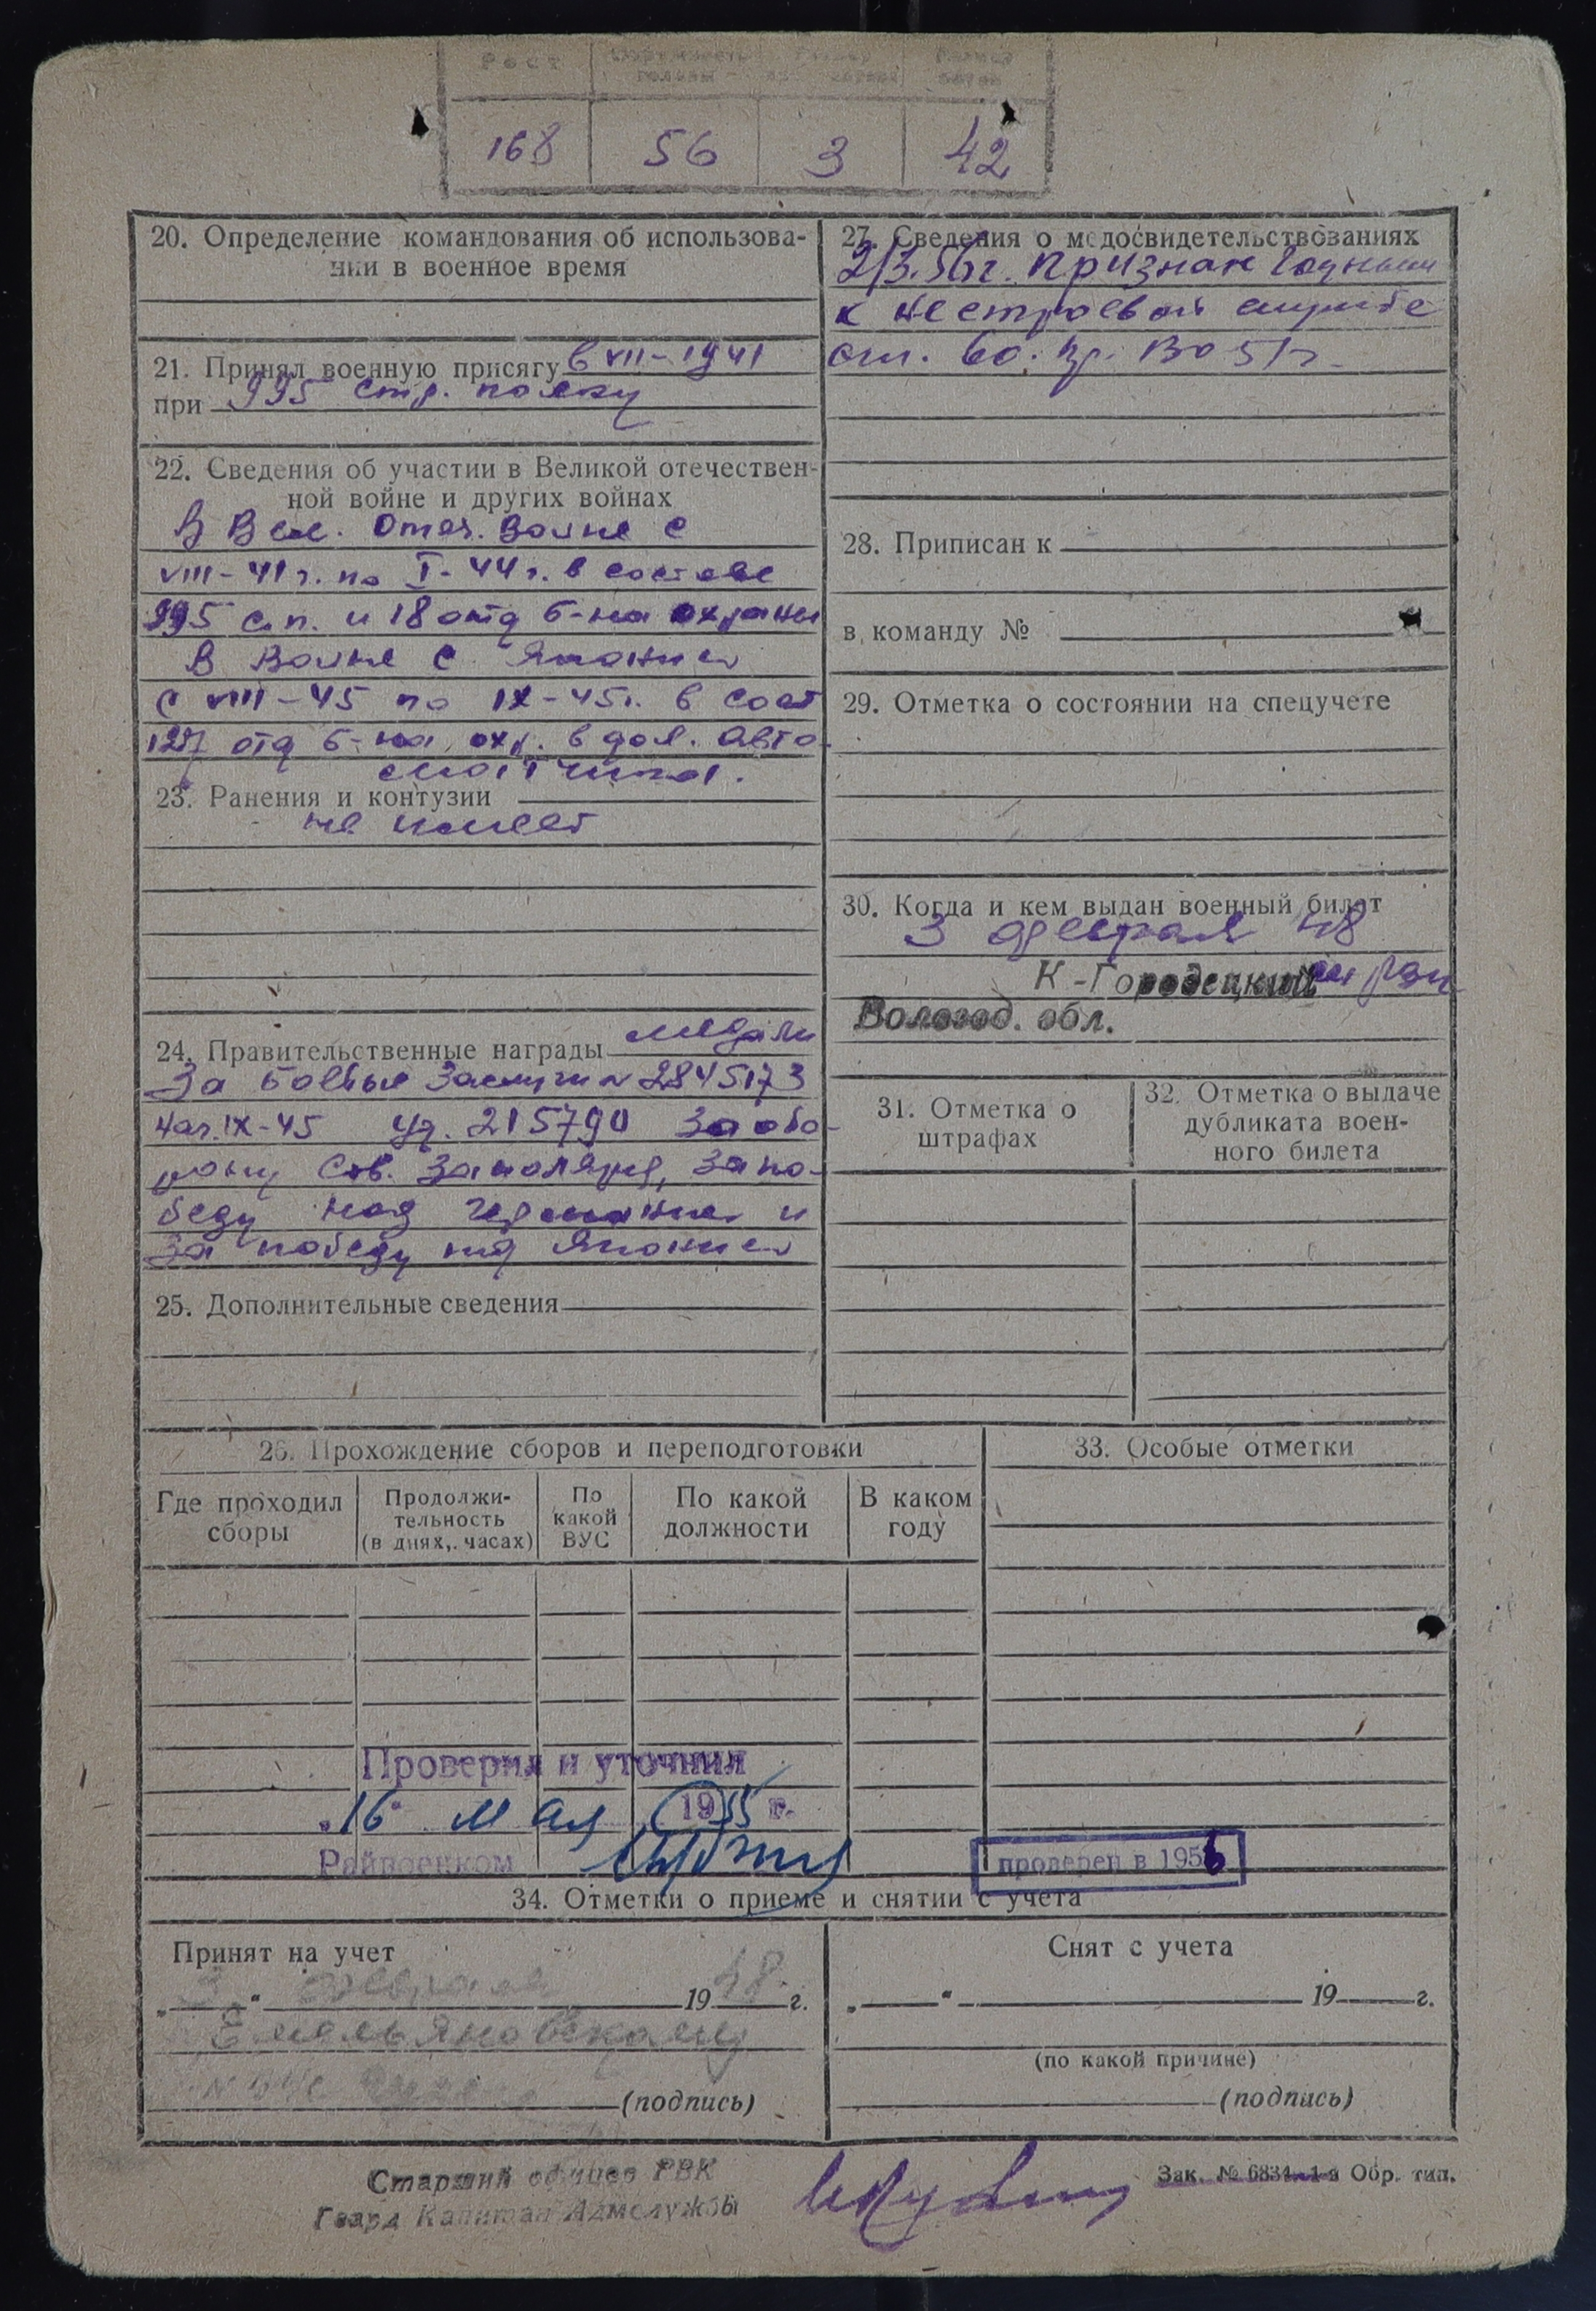 Рост
168 56 3 42
20. Определение командования об использова-
нии в военное время
21. Принял военную присягу в VII-1941
при 995 стр. полку
22. Сведения об участии в Великой отечествен-
ной войне и других войнах
В Вел. Отеч. Войне с
VIII-41 г. по I-44 г. в составе
995 с.п. и 18 отд б-на охраны
В Войне с Японией
с VIII-45 по IX-45г. в сост
127 отд б-на охр. в дол. Авто-
матчика.
23. Ранения и контузии
не имеет
24. Правительственные награды медали
За боевые заслуги N 2845173
4 аг. IX-45 уд. 215790 За обо-
рону Сов. Заполярья, За по-
беду над Германией и
За победу над Японией
25. Дополнительные сведения
27. Сведения о медосвидетельствованиях
2/3.56г. признан годным
к нестроевой службе
60. гр. 51г.
28. Приписан к
в команду №
29. Отметка о состоянии на спецучете
30. Когда и кем выдан военный билет
3 февраля 48
К-Городецким рвк
Вологод. обл.
31. Отметка о
штрафах
32. Отметка о выдаче
дубликата воен-
ного билета
26. Прохождение сборов и переподготовки
Где проходил
сборы
Продолжи-
тельность
(в днях, часах)
По
какой
ВУС
По какой
должности
В каком
году
33. Особые отметки
Проверил и уточнил
„16“ мая 1955 г.
Райвоенком
проверен в 1956
34. Отметки о приеме и снятии с учета
Принят на учет
„3“ февраля 1948 г.
Емельяновскому
(подпись)
Снят с учета
„ “ 19 г.
(по какой причине)
(подпись)
Старший офицер РВК
Гвард Капитан Адмслужбы
Зак. № 6834 1-я Обр. тип.